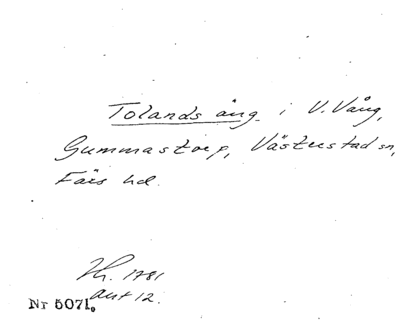 Tolands äng i V. Vång,
Gummastorp, Västerstad sn,
Färs hd.
Th. 1781
akt 12.
Nr 5071.